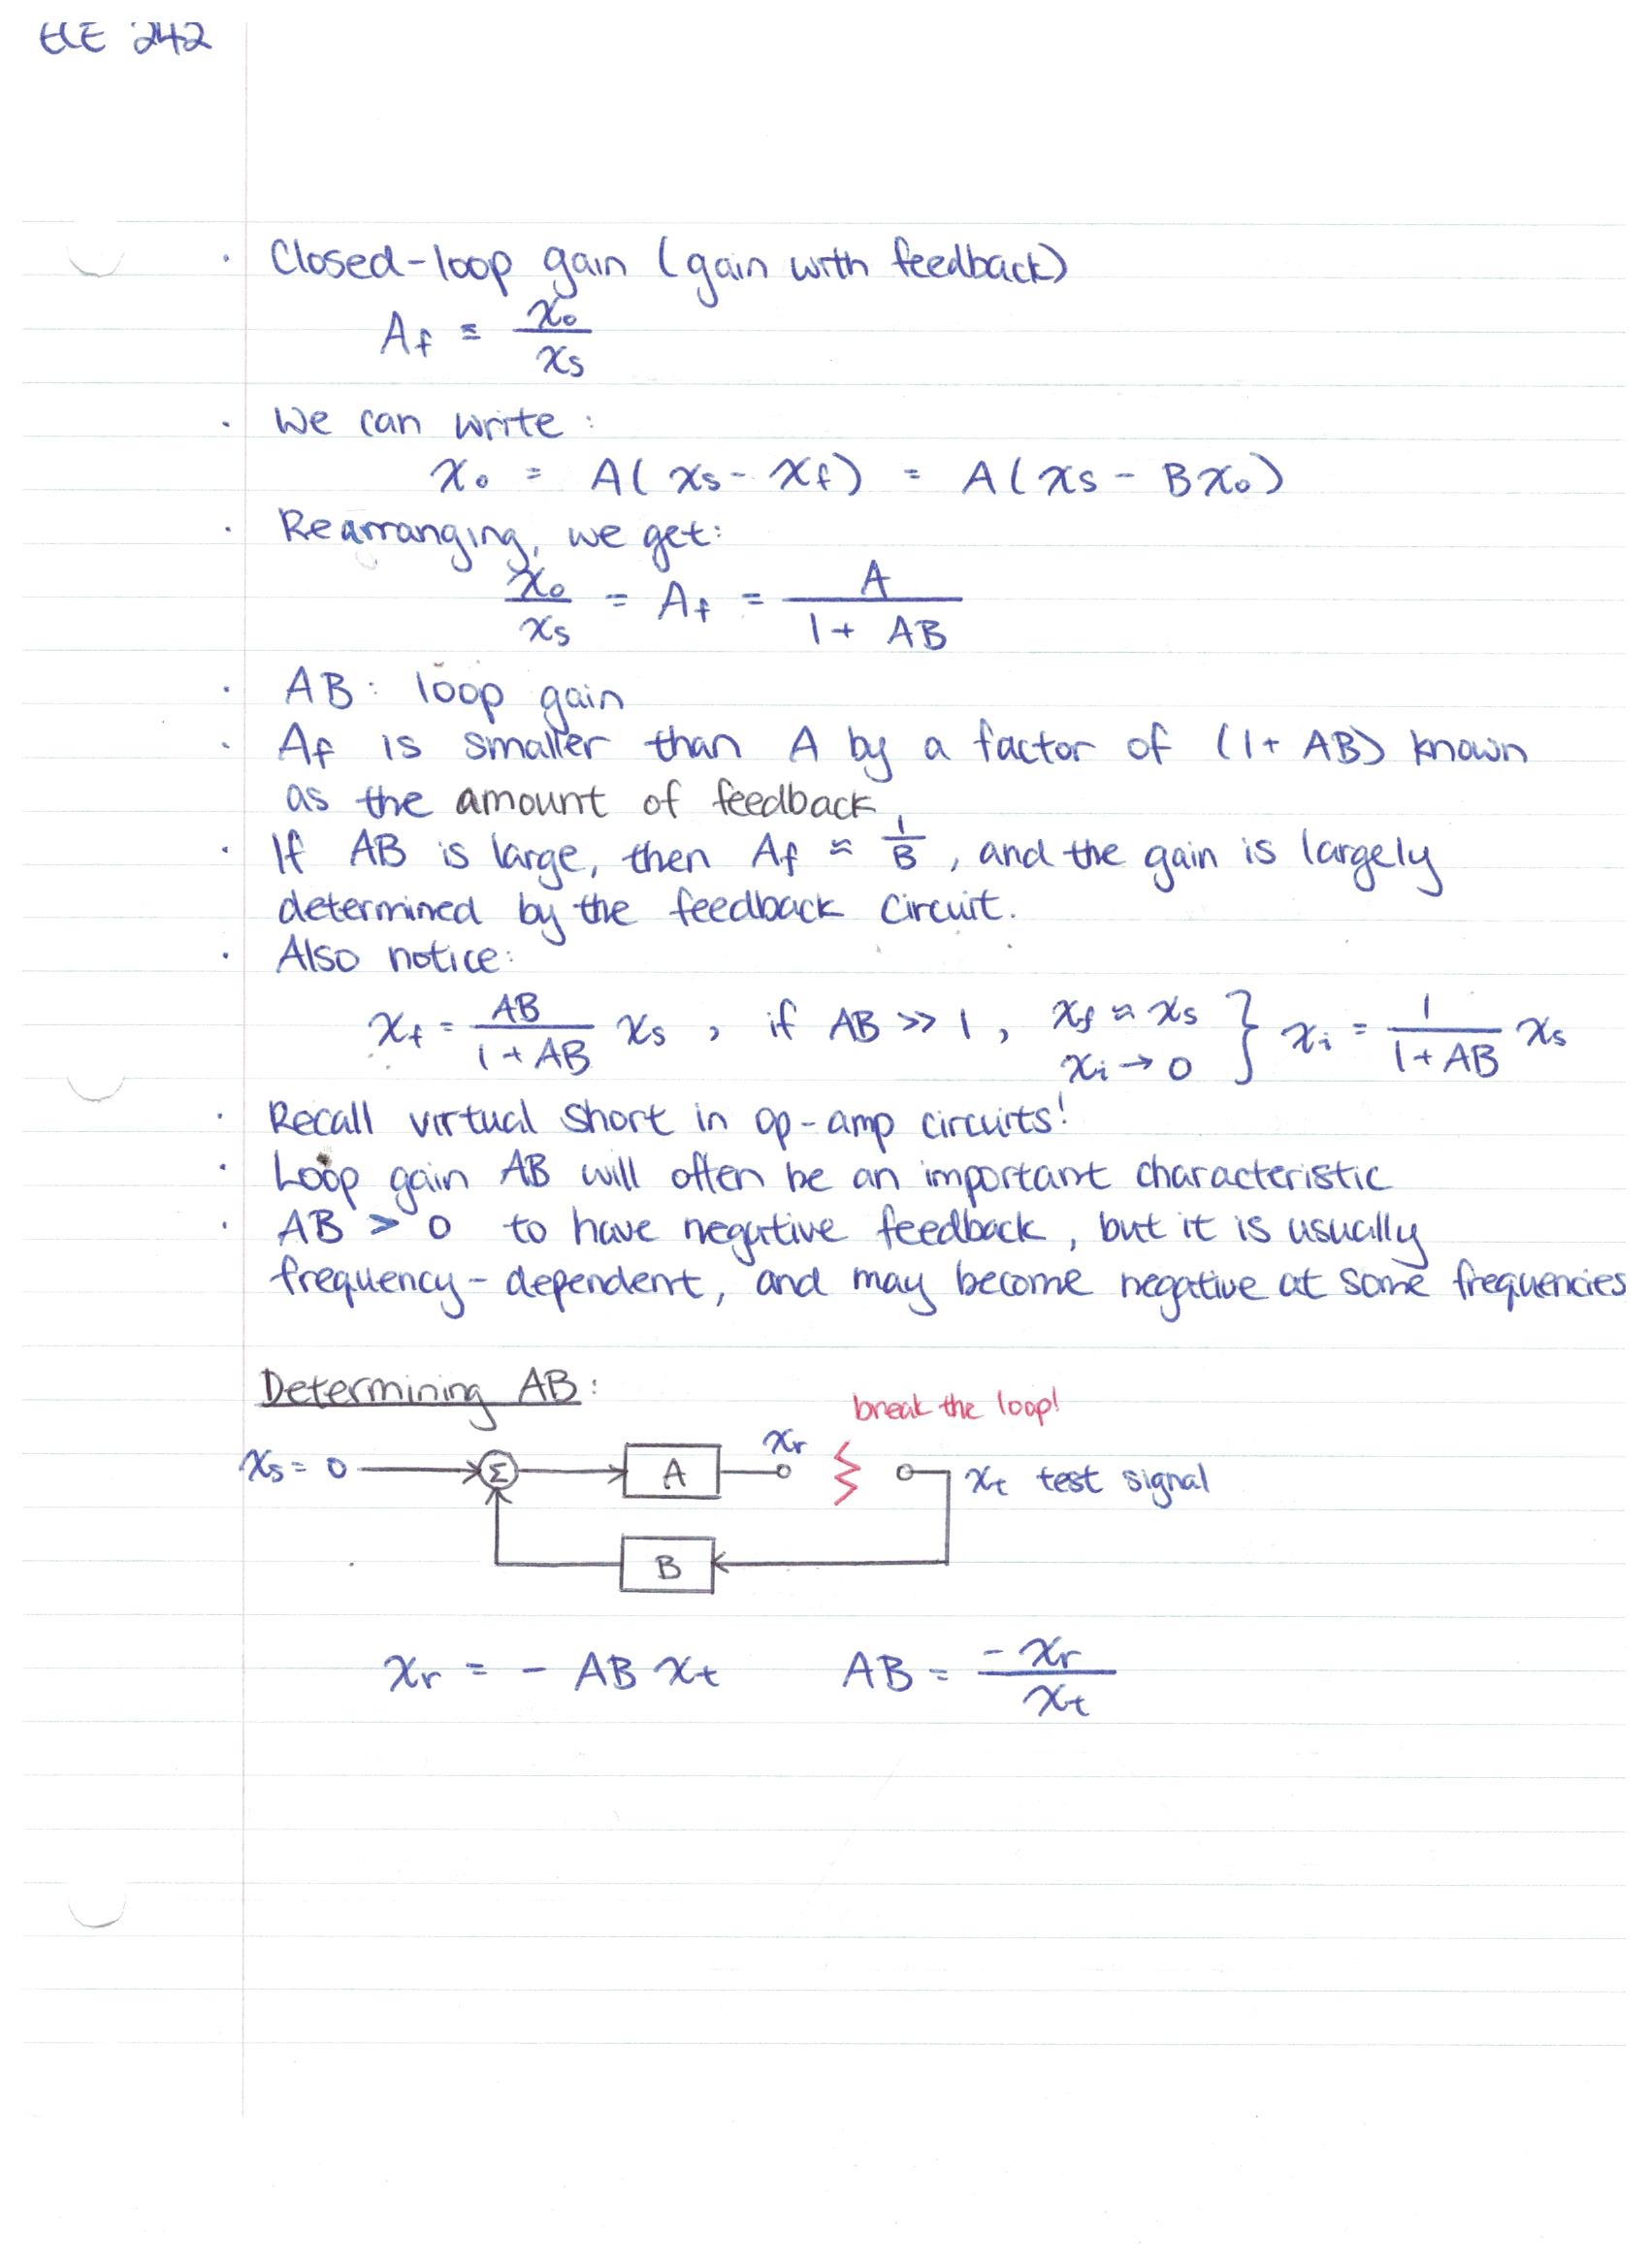 ECE 242
· Closed-loop gain (gain with feedback)
A_f ≡ x_o / x_s
· We can write:
x_o = A(x_s - x_f) = A(x_s - Bx_o)
· Rearranging, we get:
x_o / x_s = A_f = A / (1 + AB)
· AB: loop gain
· A_f is smaller than A by a factor of (1+ AB) known
as the amount of feedback
· If AB is large, then A_f ≈ 1/B, and the gain is largely
determined by the feedback circuit.
· Also notice:
x_f = AB / (1 + AB) x_s , if AB >> 1, x_f ≈ x_s
x_i → 0 } x_i = 1 / (1 + AB) x_s
· Recall virtual short in op-amp circuits!
· Loop gain AB will often be an important characteristic
· AB > 0 to have negative feedback, but it is usually
frequency-dependent, and may become negative at some frequencies
Determining AB:
break the loop!
x_s = 0 Σ A x_r x_t test signal
B
x_r = - AB x_t AB = -x_r / x_t